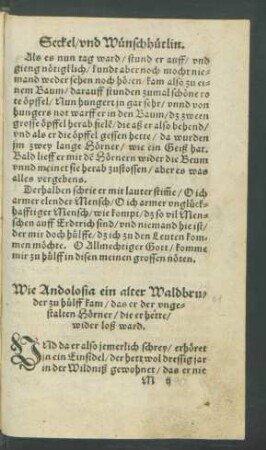 Seckel/vnd Wünschhütlin.
Als es nun tag ward/ stund er auff/ vnd
gieng nötigklich/ kundt aber noch mocht nie-
mand weder sehen noch hören/ kam also zu ei-
nem Baum/ darauff stunden zumal schöne ro
te öpffel/ Nun hungert jn gar sehr/ vnnd von
hungers not warff er in den Baum/ dz zween
grosse öpffel herab fiell/ die aß er also behend/
vnd als er die öpffel gessen hette/ da wurden
jm zwey lange Hörner/ wie ein Geiß hat.
Bald lieff er mit dē Hörnern wider die Beum
vnnd meinet sie herab zustossen/ aber es was
alles vergebens.
Derhalben schrie er mit lauter stim̄e/ O ich
armer elender Mensch/ O ich armer vnglück-
hafftiger Mensch/ wie kompt/ dz so vil Men-
schen auff Erdtrich sind/ vnd niemand hie ist/
der mir doch hülffe/ dz ich zu den Leuten kom-
men möchte. O Allmechtiger Gott/ komme
mir zu hülff in disen meinen grossen nöten.
Wie Andolosia ein alter Waldbru-
der zu hülff kam/ das er der vnge-
stalten Hörner/ die er hette/
wider loß ward.
VND da er also jemerlich schrey/ erhöret
jn ein Einsidel/ der hett wol dreissig jar
in der Wildniß gewohnet/ das er nie
M ij